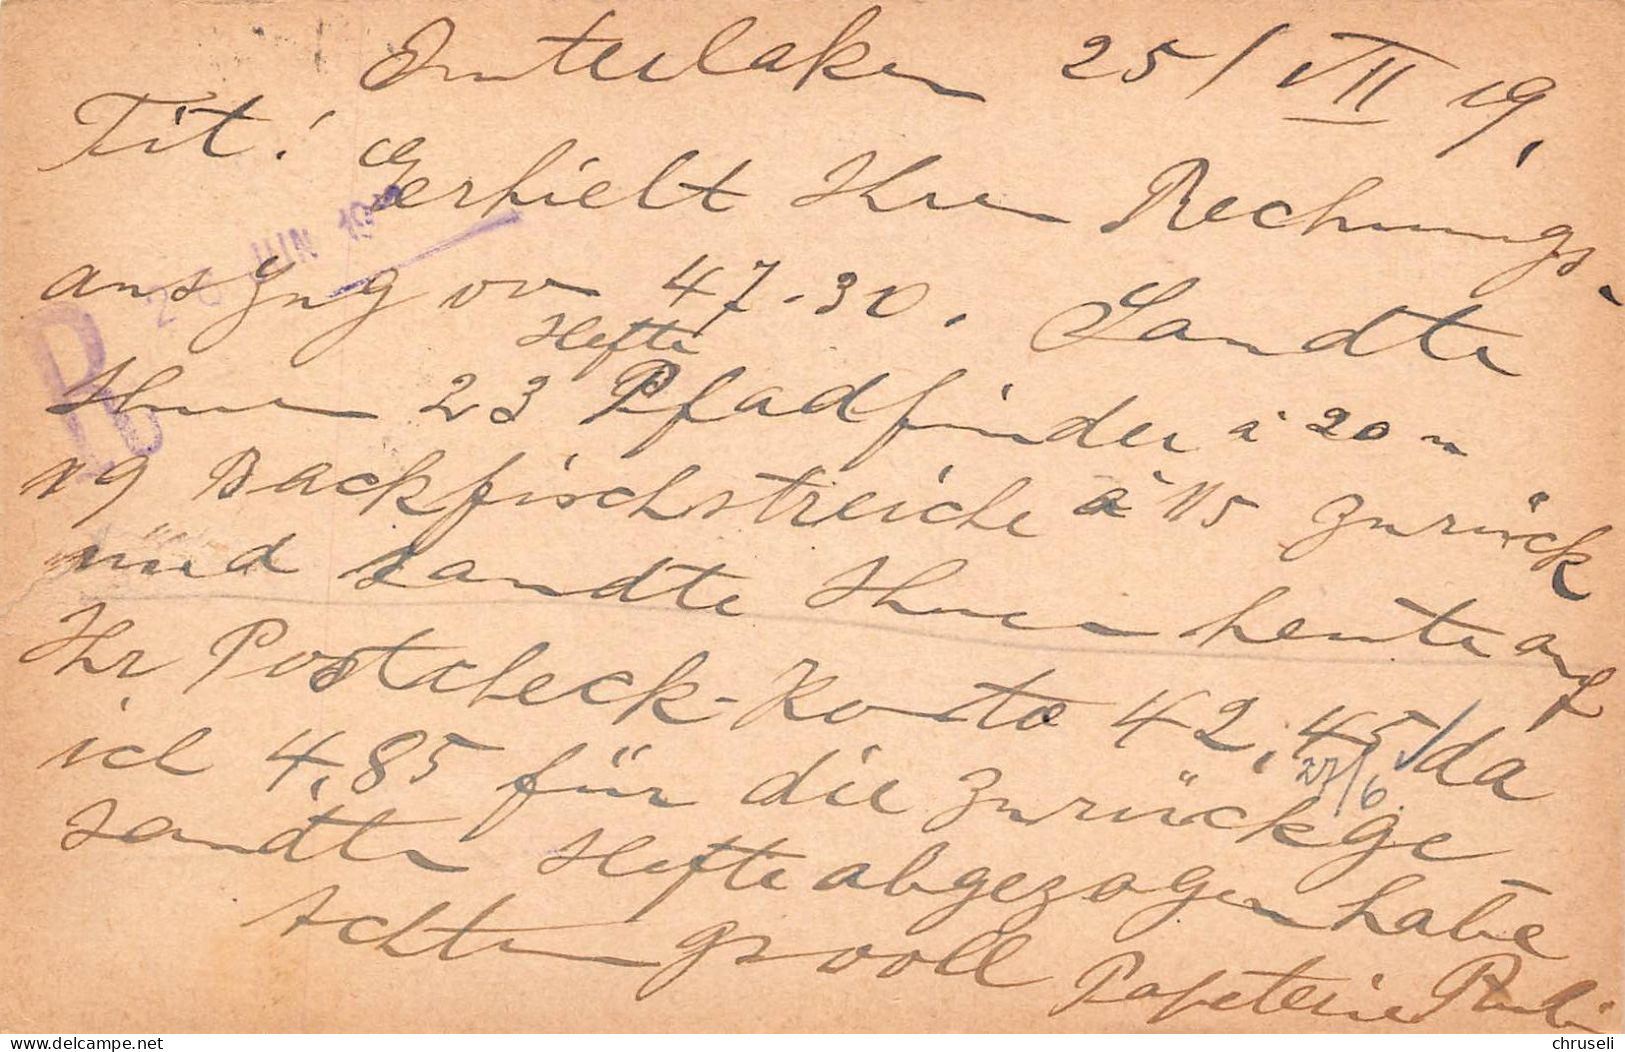 Interlaken 25/VII 19.
Tit! Erhielt Ihren Rechnungs-
auszug von 47.30. Sandte
Hefte
Ihnen 23 Pfadfinder à 20 u
19 Backfischstreiche à 15 zurück
und sandte Ihnen heute auf
Ihr Postcheck-Konto 42,45 da
27/6.
ich 4,85 für die zurückge
sandten Hefte abgezogen habe
Achtungsvoll
Papeterie
R
26 JUN 19
chruseli